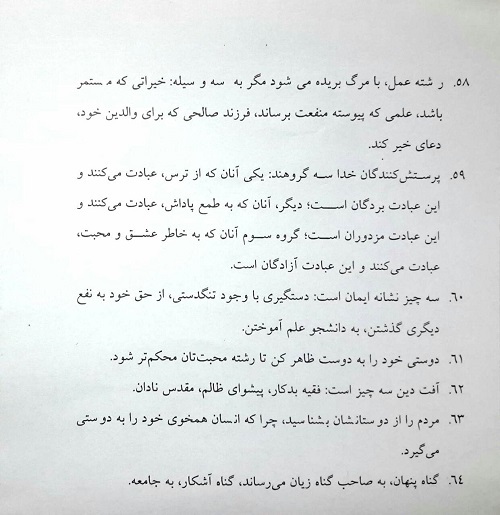 ۵۸. رشته عمل، با مرگ بریده می شود مگر به سه وسیله: خیراتی که مستمر
باشد، علمی که پیوسته منفعت برساند، فرزند صالحی که برای والدین خود،
دعای خیر کند.
۵۹. پرستش‌کنندگان خدا سه گروهند: یکی آنان که از ترس، عبادت می‌کنند و
این عبادت بردگان است؛ دیگر، آنان که به طمع پاداش، عبادت می‌کنند و
این عبادت مزدوران است؛ گروه سوم آنان که به خاطر عشق و محبت،
عبادت می‌کنند و این عبادت آزادگان است.
۶۰. سه چیز نشانه ایمان است: دستگیری با وجود تنگدستی، از حق خود به نفع
دیگری گذشتن، به دانشجو علم آموختن.
۶۱. دوستی خود را به دوست ظاهر کن تا رشته محبت‌تان محکم‌تر شود.
۶۲. آفت دین سه چیز است: فقیه بدکار، پیشوای ظالم، مقدس نادان.
۶۳. مردم را از دوستانشان بشناسید، چرا که انسان همخوی خود را به دوستی
می‌گیرد.
۶۴. گناه پنهان، به صاحب گناه زیان می‌رساند، گناه آشکار، به جامعه.